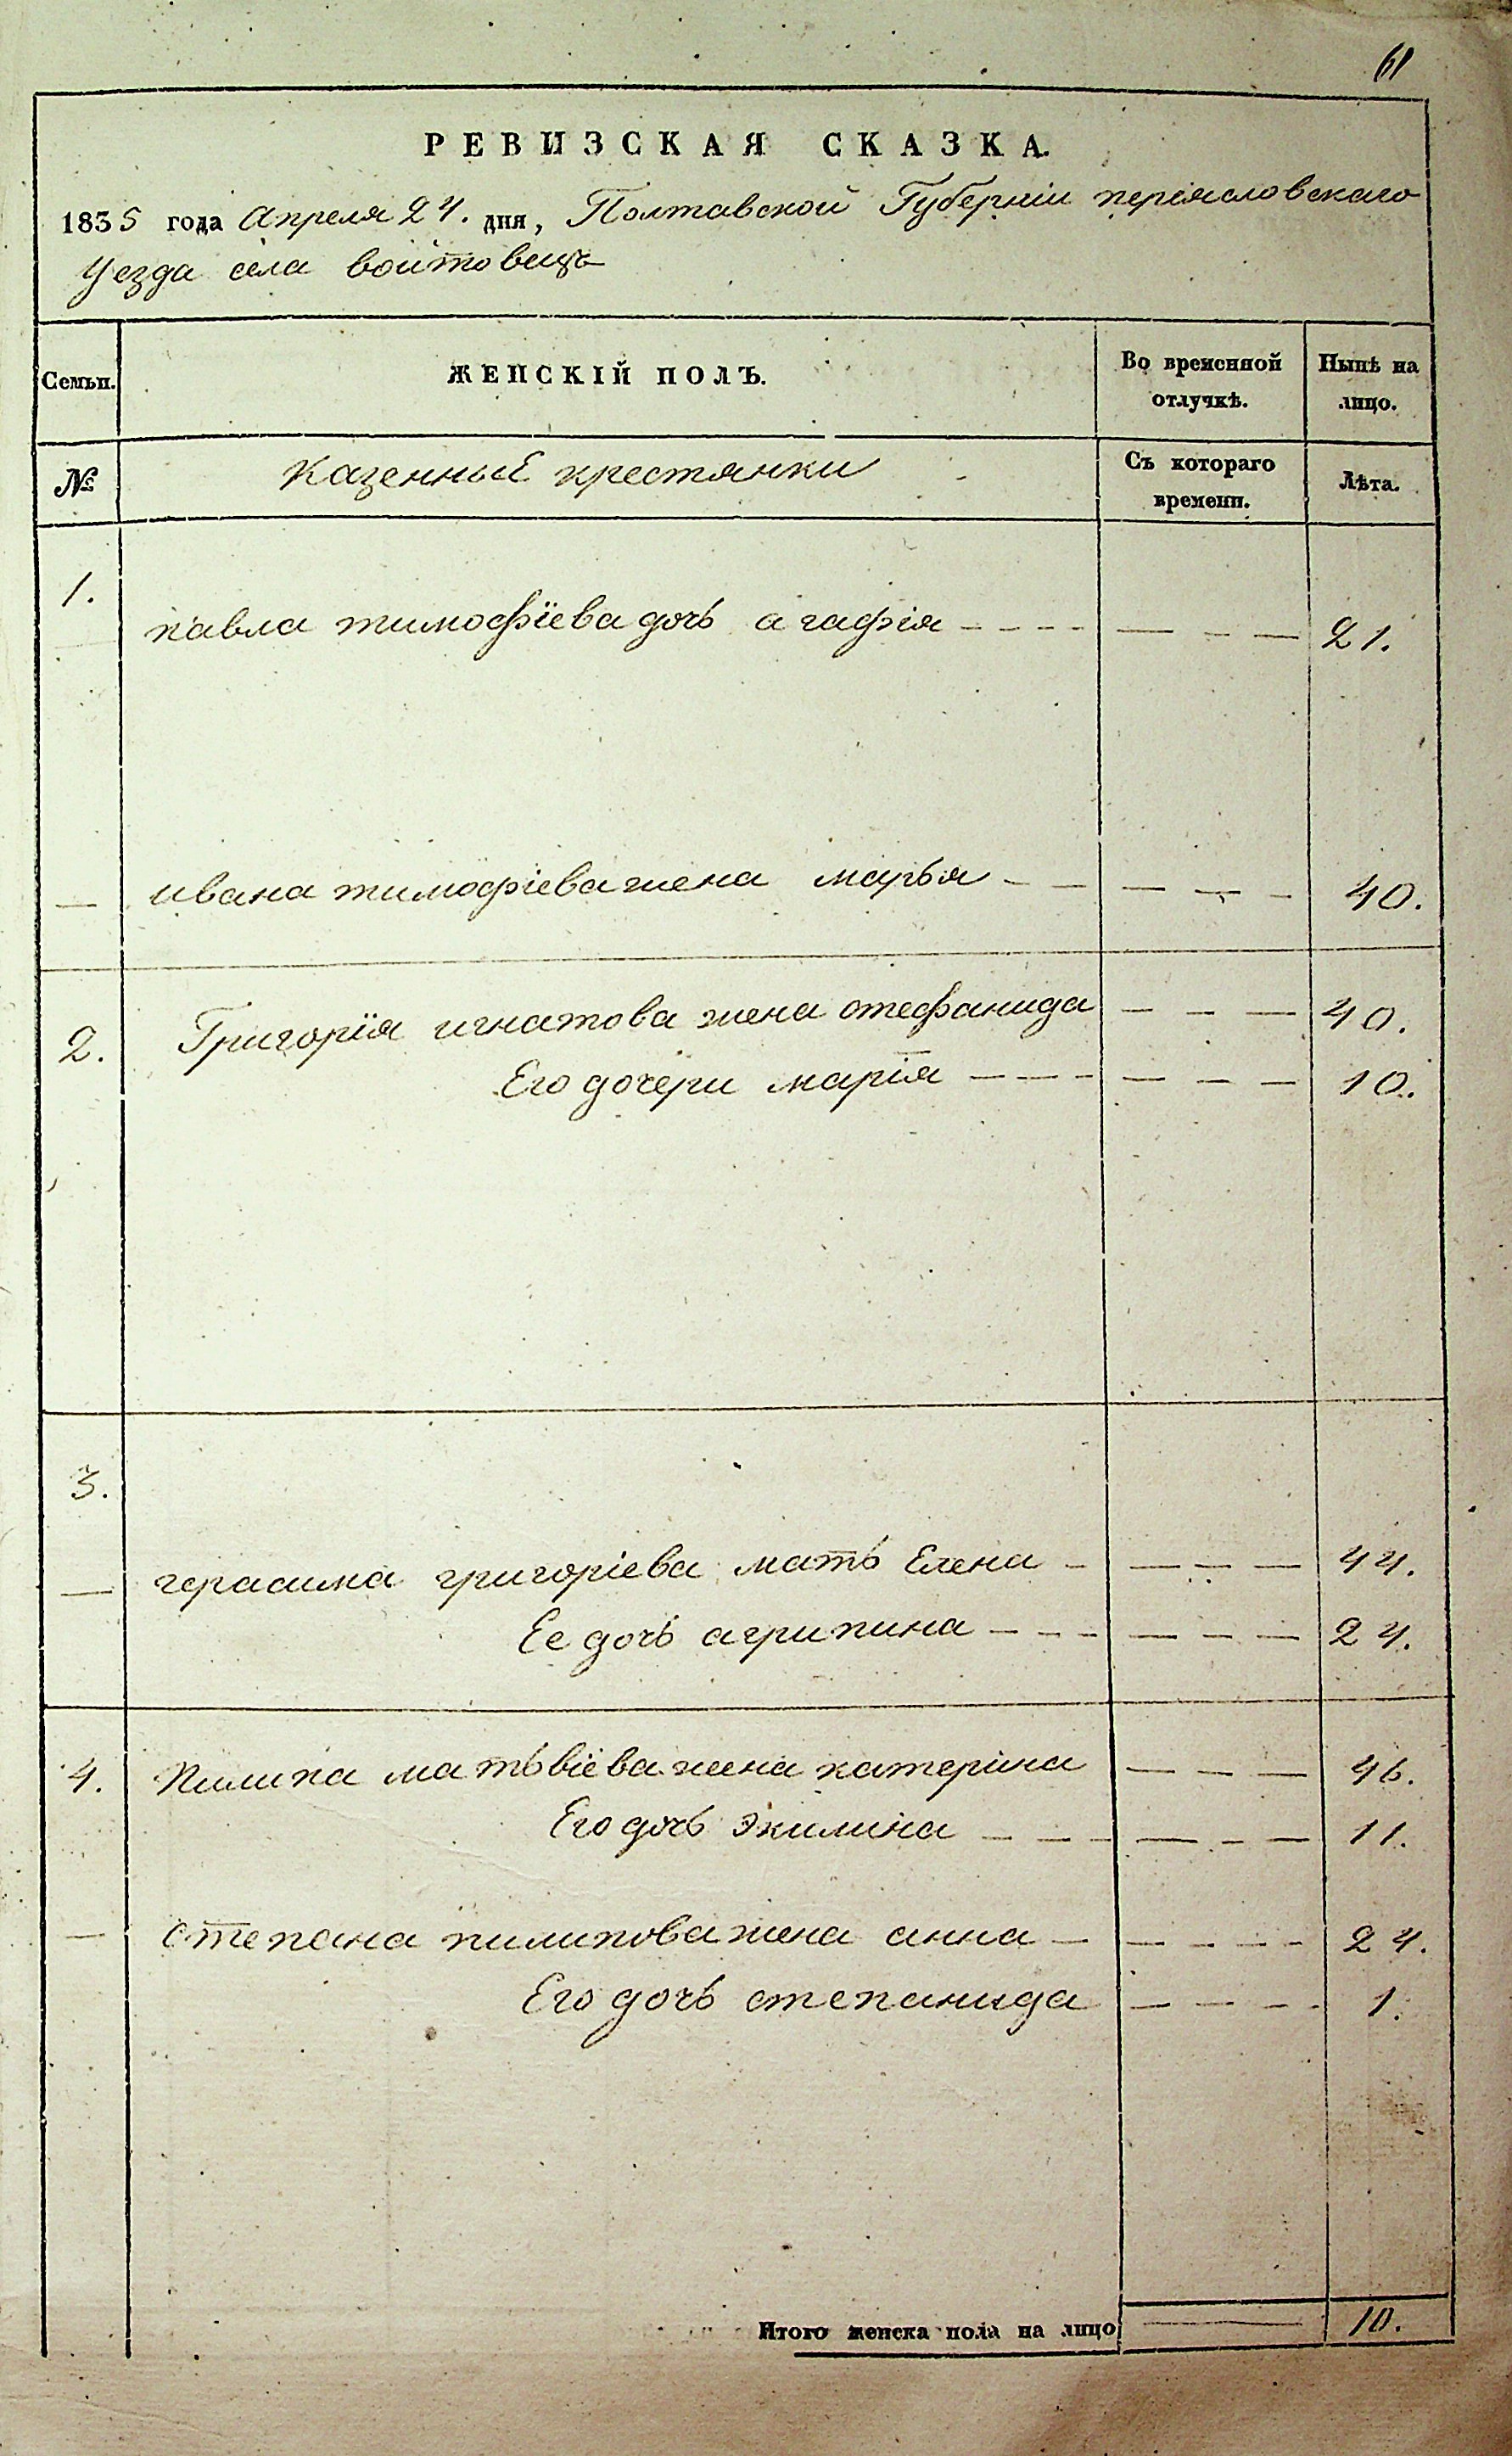 61
РЕВИЗСКАЯ СКАЗКА.
1835 года Апреля 24. дня, Полтавской Губерніи періясловскаго
Уезда села войтовецъ
Семьи.
ЖЕНСКІЙ ПОЛЪ.
Во временной отлучкѣ.
Нынѣ на лицо.
№
Казенные крестянки
Съ котораго времени.
Лѣта.
1.
павла тимофіева дочь агафія - - - - — - — 21.
— ивана тимофіева жена марья - — — - - 40.
2. Григорія игнатова жена стефанида — - — 40.
Его дочери марія - - - - — - — 10.
3.
— герасима григоріева мать Елена - — - — 44.
Ее дочь агрипина - - - — - — 24.
4. Пилипа матьвіева жена катеріна — - — 46.
Его дочь Экиліна - - - — - — 11.
— степана пилипова жена анна — - - - - 24.
Его дочь степанида — - - - 1.
Итого женска пола на лицо — 10.